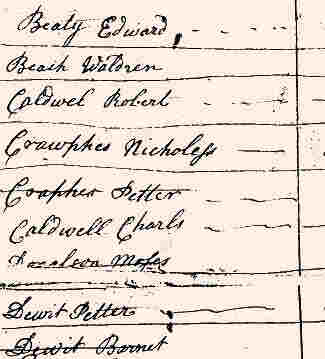 Beaty Edward,
Beach Waldren
Caldwel Robert
Crawphes Nicholess
Craphes Petter
Caldwell Charls
Moses
Dewit Petter
Dewit Barnet